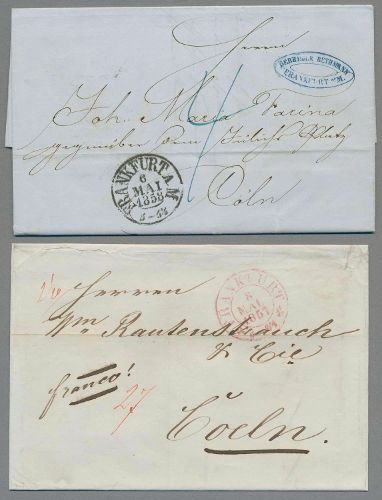 Herrn
GEBRÜDER BETHMANN
FRANKFURT a/M.
Joh. Maria Farina
gegenüber dem Jülichs Platz
Cöln
FRANKFURT A.M.
6
MAI
1858
Herren
FRANKFURT
8
MAI
1851
Wm Rautenstrauch
& Cie
franco!
27
Coeln.